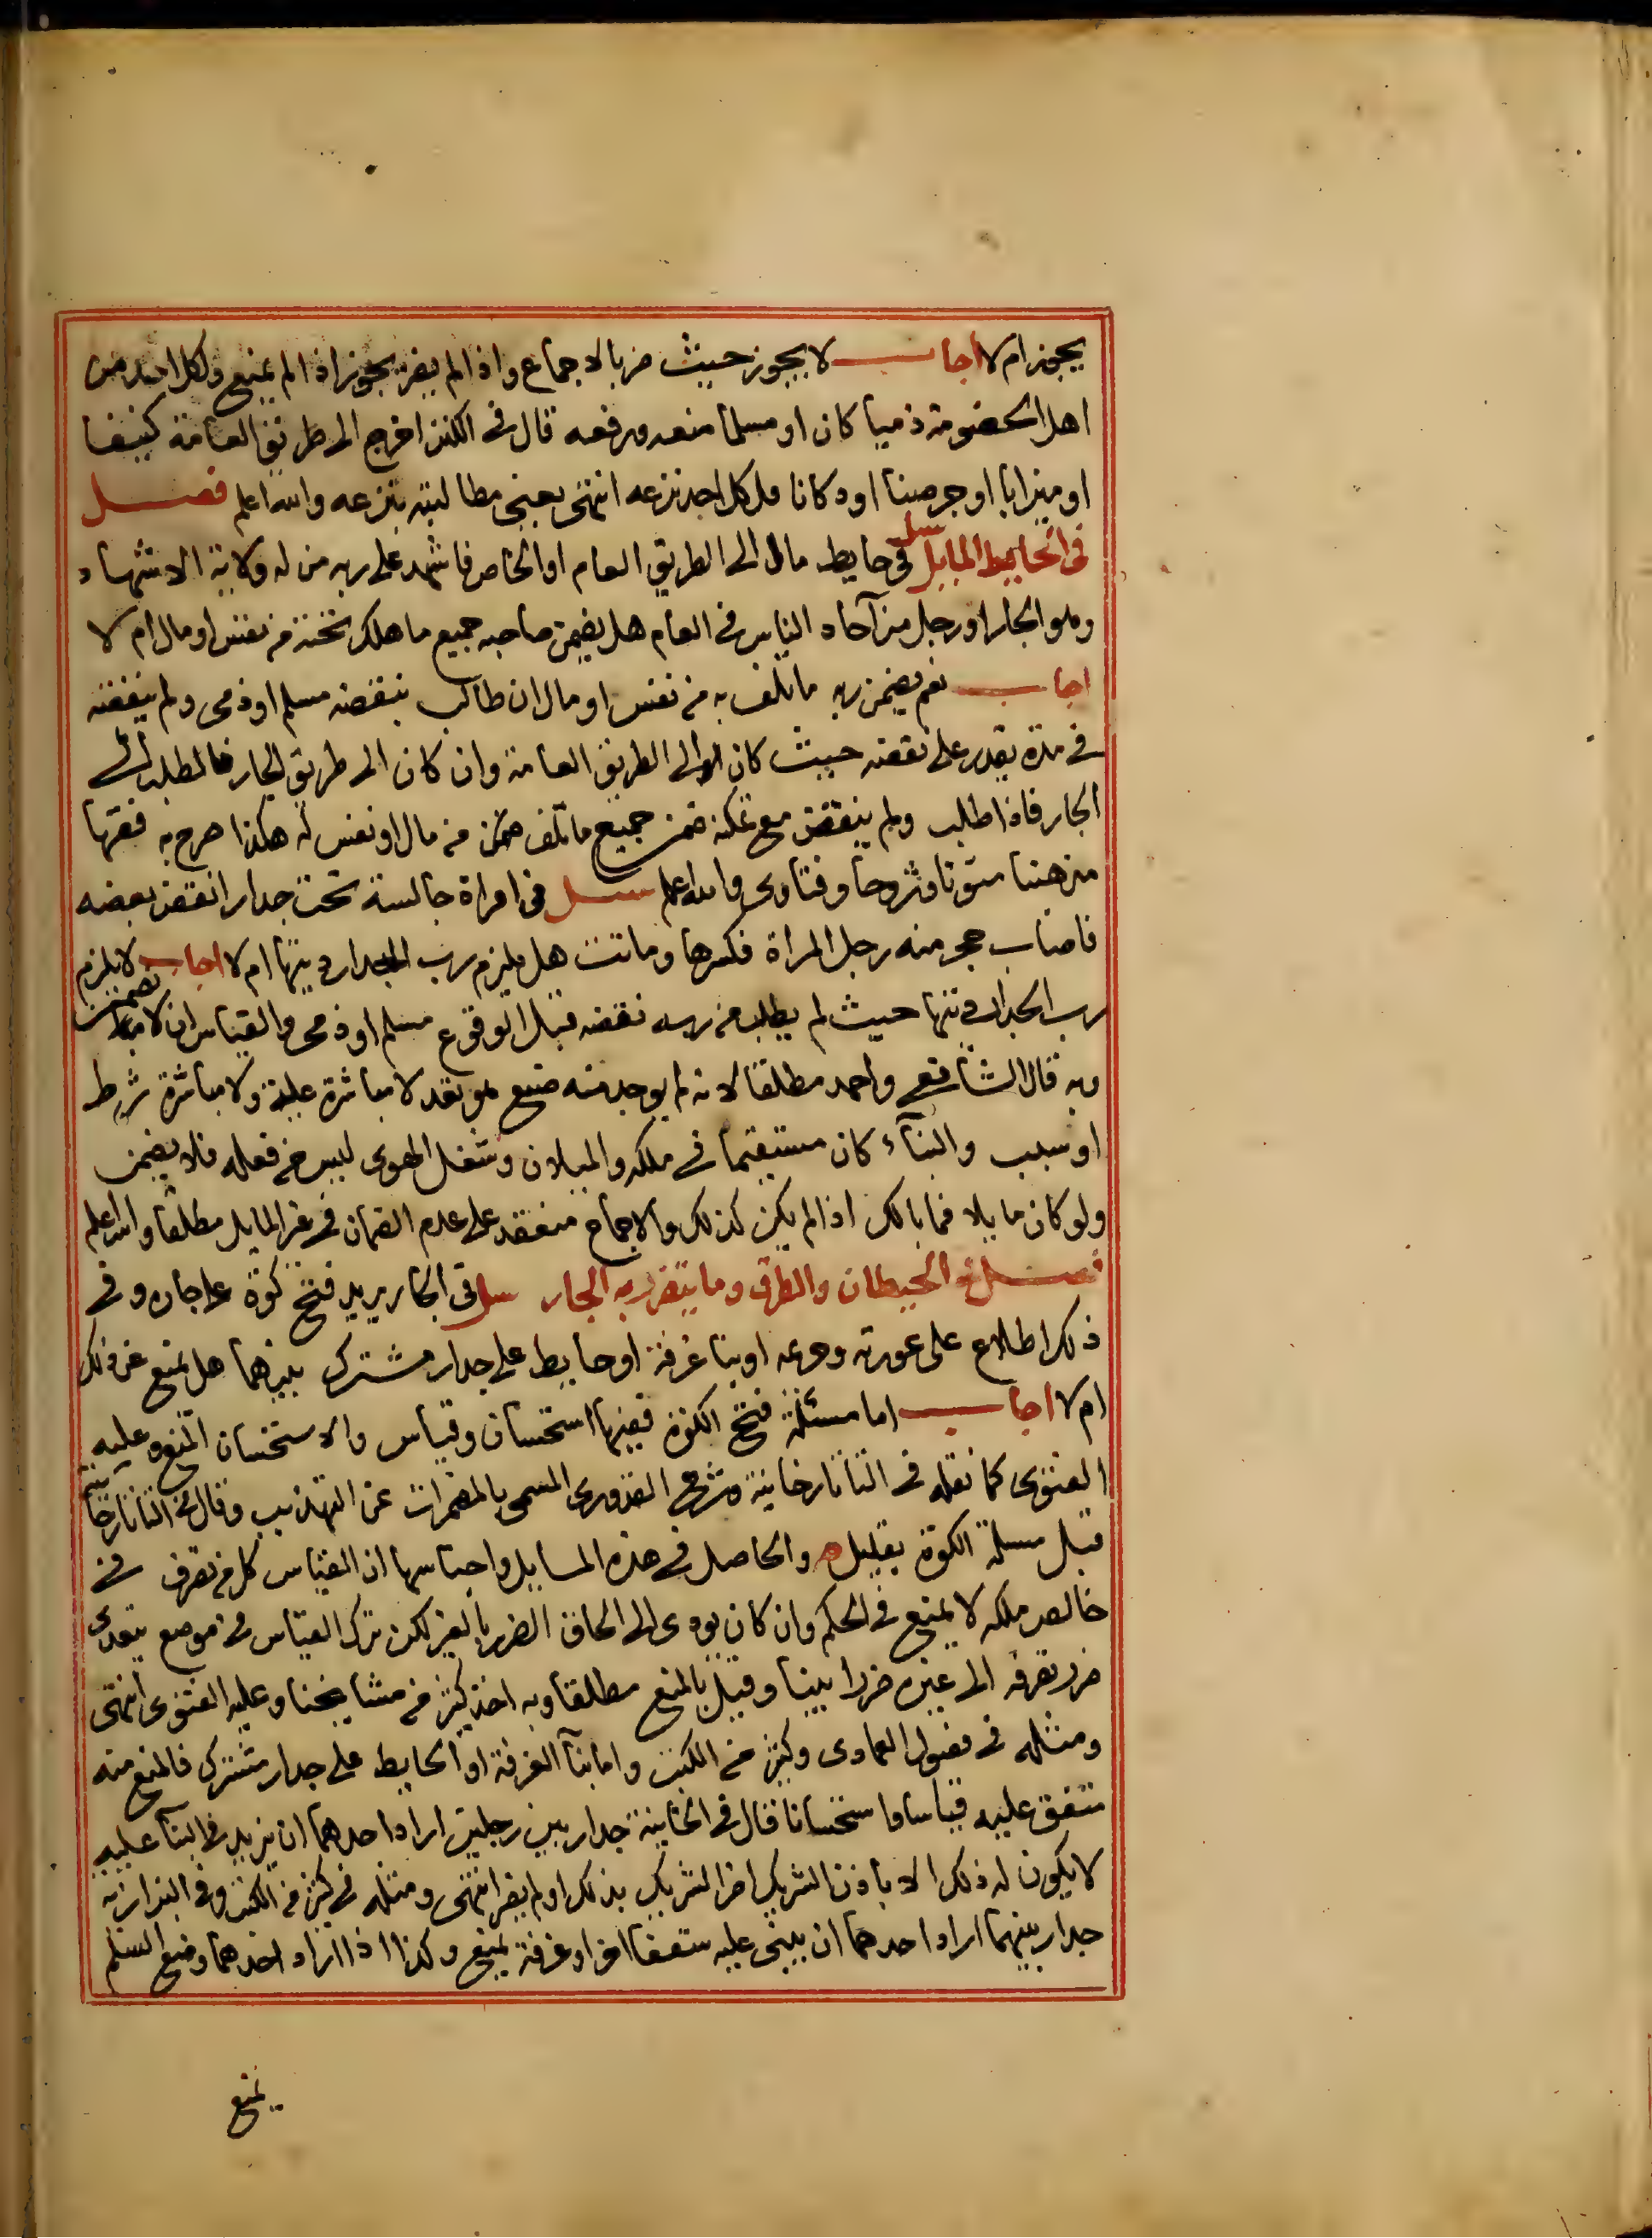 يجوز ام لا اجاب لا يجوز حيث ضر بالاجماع واذا لم يضر يجوز اذا لم يمنع ولكل احد من
اهل الخصومة ذميا كان او مسلما منعه ورفعه قال في الكنز اخرج الى طريق العامة كنيفا
او ميزابا او جرصنا او دكانا فلكل احد نزعه انتهى يعنى مطالبته بنزعه والله اعلم فصل
في الحايط المايل سل في حايط مال الى الطريق العام او الخاص فاشهد على ربه من له ولاية الاشهاد
وهو الجار او رجل من آحاد الناس في العام هل يضمن صاحبه جميع ما هلك تحته من نفس او مال ام لا
اجاب نعم يضمن ربه ما تلف به من نفس او مال ان طالب بنقضه مسلم او ذمى ولم ينقضه
في مدة يقدر على نقضه حيث كان الى الطريق العامة وان كان الى طريق الجار فالمطلب الى
الجار فاذا طلب ولم ينقض مع تمكنه ضمن جميع ما تلف من مال او نفس له هكذا صرح به فقها
مذهبنا متونا وشروحا وفتاوى والله اعلم سل في امراة جالسة تحت جدار انقض بعضه
فاصاب حجر منه رجل المراة فكسرها وماتت هل يلزم رب الجدار ديتها ام لا اجاب لا يلزم
رب الجدار ديتها حيث لم يطلب من ربه نقضه قبل الوقوع مسلم او ذمى والقياس ان لا يضمن
وبه قال الشافعى واحمد مطلقا لانه لم يوجد منه صنع هو تعد لا مباشرة علة ولا مباشرة شرط
او سبب والبنآء كان مستقيما في ملكه والميلان وشغل الهوى ليس من فعله فلا يضمن
ولو كان مايلا فما بالك اذا لم يكن كذلك والاجماع منعقد على عدم الضمان في غير المايل مطلقا والله اعلم
فصل في الحيطان والطرق وما يتضرر به الجار سل في الجار يريد فتح كوة على جاره وفي
ذلك اطلاع على عورته وحرمه او بنا غرفة او حايط على جدار مشترك بينهما هل يمنع عن ذلك
ام لا اجاب اما مسئلة فتح الكوة ففيها استحسان وقياس والاستحسان المنع وعليه
الفتوى كما نقله في التاتارخانية وشرح القدورى المسمى بالمضمرات عن التهذيب وقال في التاتارخانية
قبل مسلة الكوة بقليل والحاصل في هذه المسايل واجناسها ان القياس كل من تصرف في
خالص ملكه لا يمنع في الحكم وان كان يودى الى الحاق الضرر بالغير لكن ترك القياس في موضع يتعدى
ضرر تصرفه الى غيره ضررا بينا وقيل بالمنع مطلقا وبه اخذ كثير من مشايخنا وعليه الفتوى انتهى
ومثله في فصول العمادى وكثير من الكتب واما بنآ الغرفة او الحايط على جدار مشترك فالمنع منه
متفق عليه قياسا واستحسانا قال في الخانية جدار بين رجلين اراد احدهما ان يزيد في البنآ عليه
لا يكون له ذلك الا باذن الشريك اضر الشريك بذلك او لم يضر انتهى ومثله في كثير من الكتب وفي البزازية
جدار بينهما اراد احدهما ان يبنى عليه سقفا اخر او غرفة يمنع وكذا اذا اراد احدهما وضع السلم
يمنع